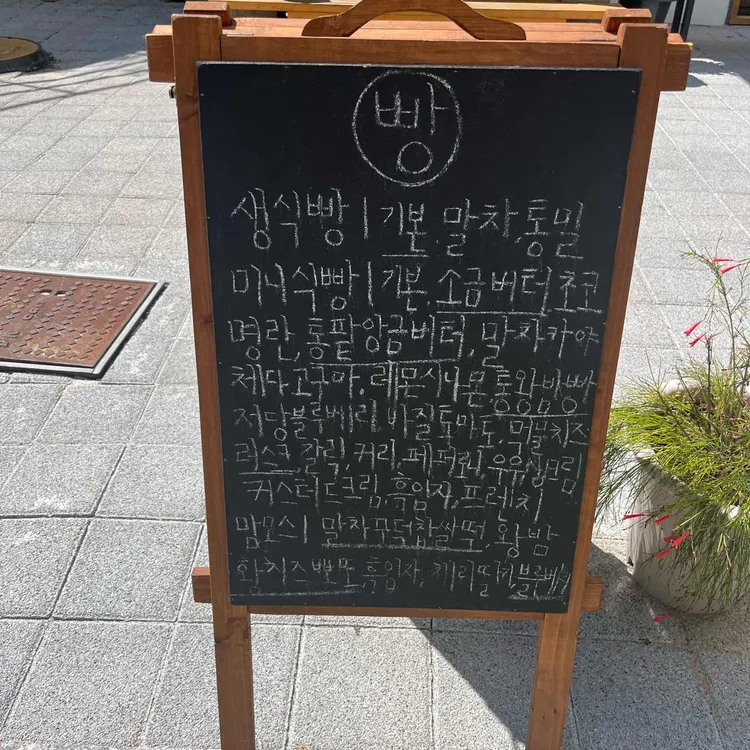 빵
생식빵 | 기본, 말차, 통밀
미니식빵 | 기본, 소금버터, 초코
명란, 통팥앙금버터, 말차카야
체다고구마, 레몬시나몬, 통왕밤빵
저당블루베리, 바질토마토, 먹물치즈
러스크, 갈릭, 커리, 페퍼런, 우유생크림
커스터드크림, 흑임자, 프렌치
맘모스 | 말차꾸덕찹쌀떡, 왕밤
황치즈뽀또, 흑임자, 체리딸기, 블루베리